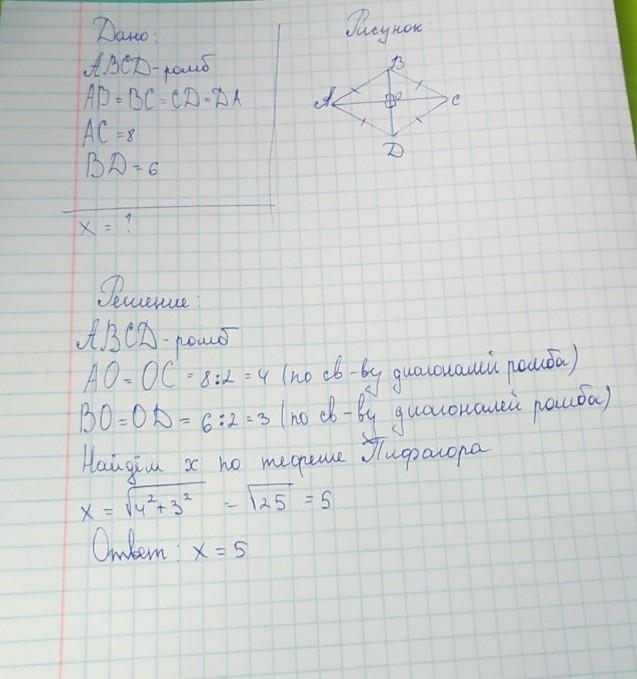 Дано:
ABCD-ромб
AB=BC=CD=DA
AC=8
BD=6
x = ?
Рисунок
B
A
O
C
D
Решение:
ABCD-ромб
AO=OC=8:2=4 (по св-ву диагоналей ромба)
BO=OD=6:2=3 (по св-ву диагоналей ромба)
Найдём x по теореме Пифагора
x = √4²+3² = √25 = 5
Ответ: x=5